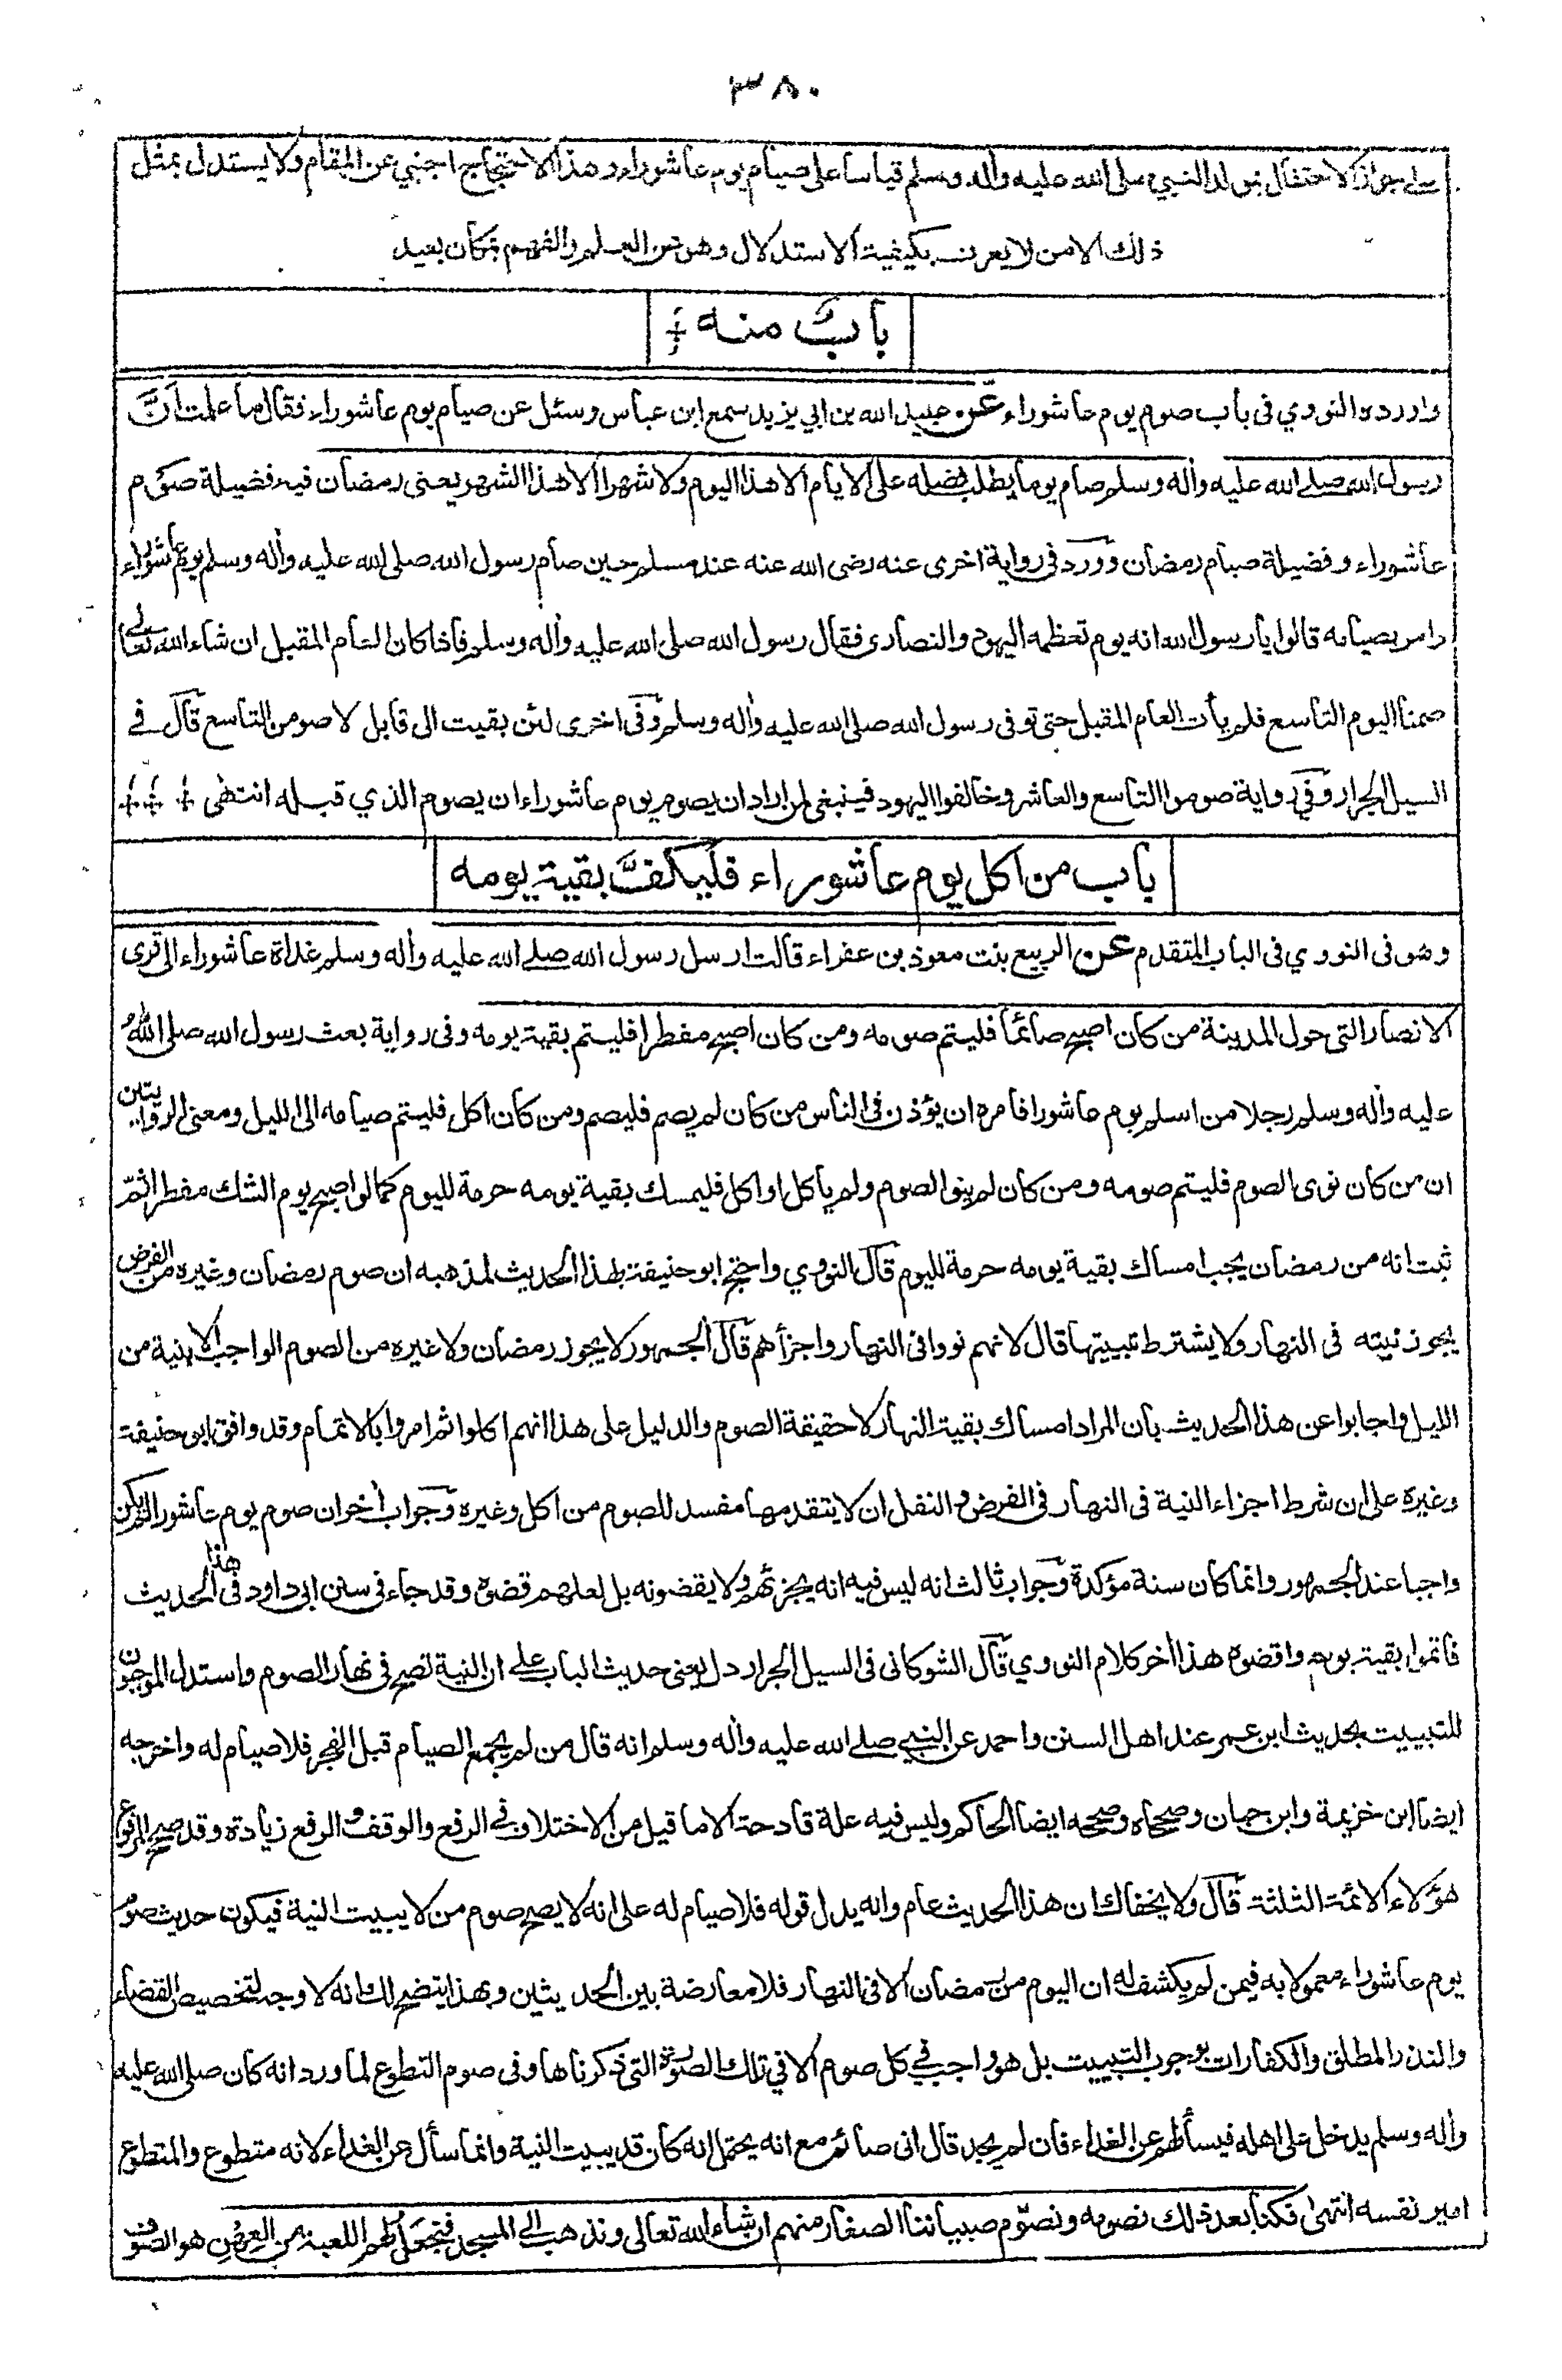 ٣٨٠
على جواز الاحتفال بمولد النبي صلى الله عليه واله وسلم قياسا على صيام يوم عاشوراء وهذا الاحتجاج اجنبي عن المقام ولا يستدل بمثل
ذلك الا من لا يعرف بكيفية الاستدلال وهو عن العلم والفهم بمكان بعيد
باب منه
واورده النووي فى باب صوم يوم عاشوراء عن عبيد الله بن ابي يزيد سمع ابن عباس وسئل عن صيام يوم عاشوراء فقال ما علمت انَّ
رسول الله صلے الله عليه واله وسلم صام يوما يطلب فضله على الايام الا هذا اليوم ولا شهرا الا هذا الشهر يعنى رمضان فيه فضيلة صوم
عاشوراء وفضيلة صيام رمضان وورد فى رواية اخرى عنه رضى الله عنه عند مسلم حين صام رسول الله صلى الله عليه واله وسلم يوم عاشوراء
وامر بصيامه قالوا يا رسول الله انه يوم تعظمه اليهود والنصارى فقال رسول الله صلى الله عليه واله وسلم فاذا كان العام المقبل ان شاء الله تعالى
صمنا اليوم التاسع فلم يأت العام المقبل حتى توفى رسول الله صلى الله عليه واله وسلم وفى اخرى لئن بقيت الى قابل لاصومن التاسع قال فے
السيل الجرار وفي رواية صوموا التاسع والعاشر وخالفوا اليهود فينبغى لمن اراد ان يصوم يوم عاشوراء ان يصوم الذي قبله انتهى
باب من اكل يوم عاشوراء فليكفَّ بقية يومه
وهو فى النووي فى الباب المتقدم عن الربيع بنت معوذ بن عفراء قالت ارسل رسول الله صلے الله عليه واله وسلم غداة عاشوراء الى قرى
الانصار التى حول المدينة من كان اصبح صائما فليتم صومه ومن كان اصبح مفطرا فليتم بقية يومه وفى رواية بعث رسول الله صلى الله
عليه واله وسلم رجلا من اسلم يوم عاشورا فامره ان يؤذن فى الناس من كان لم يصم فليصم ومن كان اكل فليتم صيامه الى الليل ومعنى الروايتين
ان من كان نوى الصوم فليتم صومه ومن كان لم ينو الصوم ولم ياكل او اكل فليمسك بقية يومه حرمة لليوم كما لو اصبح يوم الشك مفطرا ثم
ثبت انه من رمضان يجب امساك بقية يومه حرمة لليوم قال النووي واحتج ابو حنيفة بهذا الحديث لمذهبه ان صوم رمضان وغيره من الفرض
يجوز نيته فى النهار ولا يشترط تبييتها قال لانهم نووا فى النهار واجزأهم قال الجمهور لا يجوز رمضان ولا غيره من الصوم الواجب الا بنية من
الليل واجابوا عن هذا الحديث بان المراد امساك بقية النهار لا حقيقة الصوم والدليل على هذا انهم اكلوا ثم امروا بالاتمام وقد وافق ابو حنيفة
وغيره على ان شرط اجزاء النية فى النهار فى الفرض والنفل ان لا يتقدمها مفسد للصوم من اكل وغيره وجواب اخر ان صوم يوم عاشورا لم يكن
واجبا عند الجمهور وانما كان سنة مؤكدة وجواب ثالث انه ليس فيه انه يجزئهم ولا يقضونه بل لعلهم قضوه وقد جاء فى سنن ابى داود فى هذا الحديث
فاتموا بقية يومه واقضوه هذا اخر كلام النووي قال الشوكانى فى السيل الجرار دل يعنى حديث الباب على ان النية تصح فى نهار الصوم واستدل الموجبون
للتبييت بحديث ابن عمر عند اهل السنن واحمد عن النبي صلے الله عليه واله وسلم انه قال من لم يجمع الصيام قبل الفجر فلا صيام له واخرجه
ايضا ابن خزيمة وابن حبان وصححاه وصححه ايضا الحاكم وليس فيه علة قادحة الا ما قيل من الاختلاف فے الرفع والوقف والرفع زيادة وقد صحح المرفوع
هؤلاء الائمة الثلثة قال ولا يخفاك ان هذا الحديث عام وانه يدل قوله فلا صيام له على انه لا يصح صوم من لا يبيت النية فيكون حديث صوم
يوم عاشوراء معمولا به فيمن لم يكشف له ان اليوم من رمضان الا فى النهار فلا معارضة بين الحديثين وبهذا يتضح لك انه لا وجه لتخصيص القضاء
والنذر المطلق والكفارات بوجوب التبييت بل هو واجب فى كل صوم الا في تلك الصورة التى ذكرناها وفى صوم التطوع لما ورد انه كان صلى الله عليه
واله وسلم يدخل على اهله فيسألهم عن الغداء فان لم يجد قال انى صائم مع انه يحتمل انه كان قد يبيت النية وانما سأل عن الغداء لانه متطوع والمتطوع
امير نفسه انتهى فكنا بعد ذلك نصومه ونصوّم صبياننا الصغار منهم ان شاء الله تعالى ونذهب الى المسجد فنجعل لهم اللعبة من العِهْنِ هو الصوف